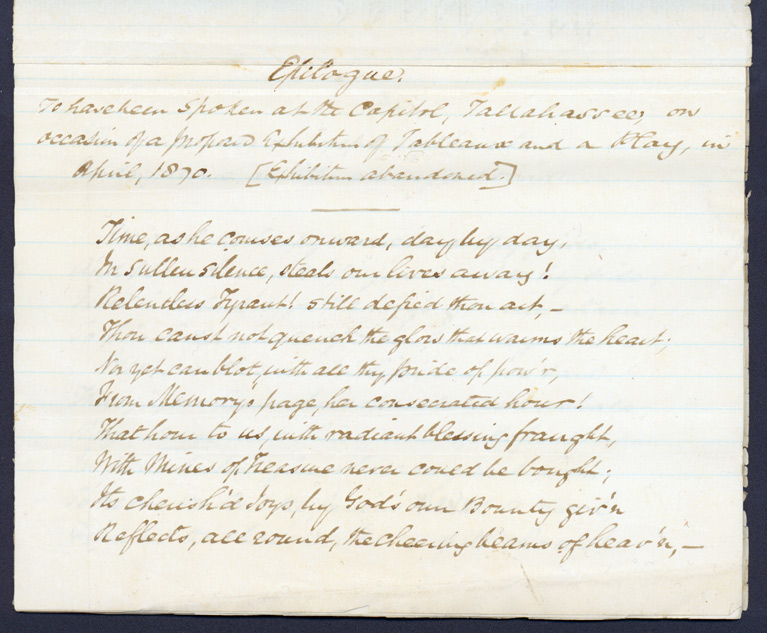 Epilogue.
To have been Spoken at the Capitol, Tallahassee, on
occasion of a proposed Exhibition of Tableaux and a Play, in
April, 1870. [Exhibition abandoned.]
Time, as he courses onward, day by day,
In sullen silence, steals our lives away!
Relentless Tyrant! still defied thou art,—
Thou canst not quench the glow that warms the heart;
Nor yet can blot, with all thy pride of pow'r,
From Memory's page, her consecrated hour!
That hour to us, with radiant blessing fraught,
With Mines of Treasure never could be bought;
Its cherish'd Joys, by God's own Bounty giv'n
Reflects, all round, the cheering beams of heav'n,—